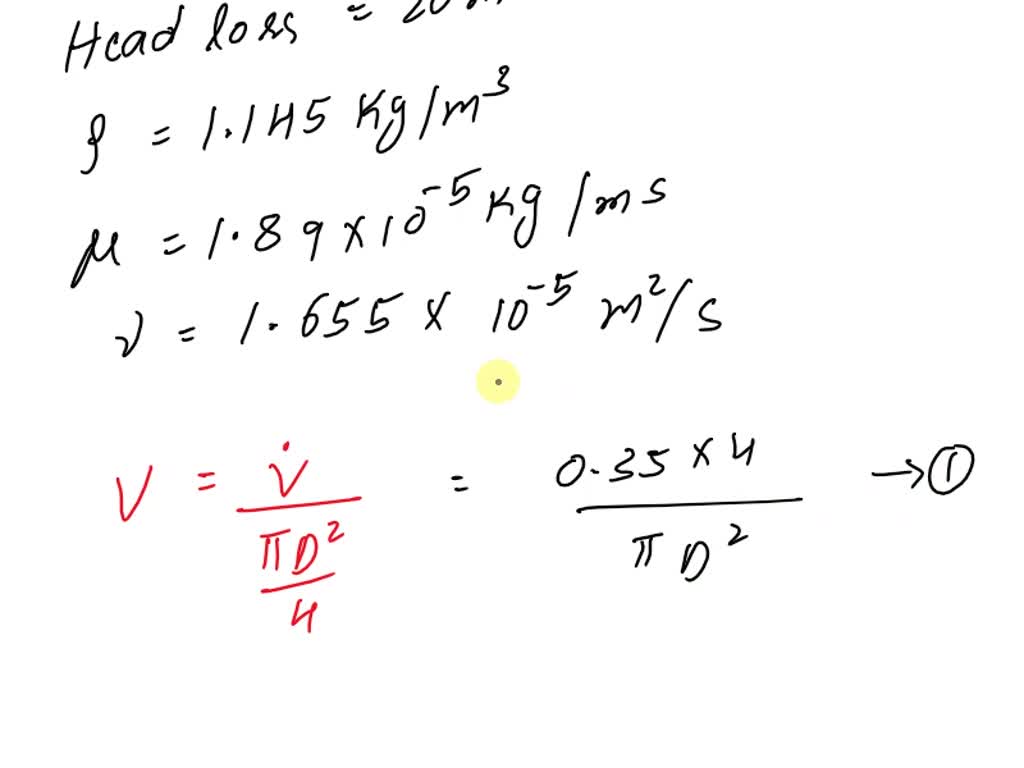 Head loss = 20
ρ = 1.145 Kg/m³
μ = 1.89 × 10⁻⁵ Kg/ms
ν = 1.655 × 10⁻⁵ m²/s
V = V̇ / (πD² / 4) = 0.35 × 4 / πD² → ①